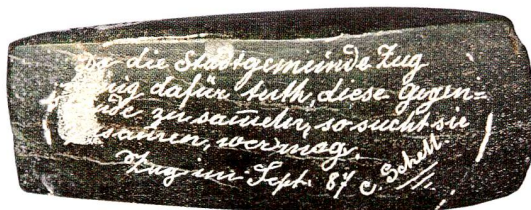 Da die Stadtgemeinde Zug
nig dafür tuth, diese Gegen=
nde, zu sameln, so sucht sie
samen, wer mag.
Zug im Sept. 87 C. Schell.